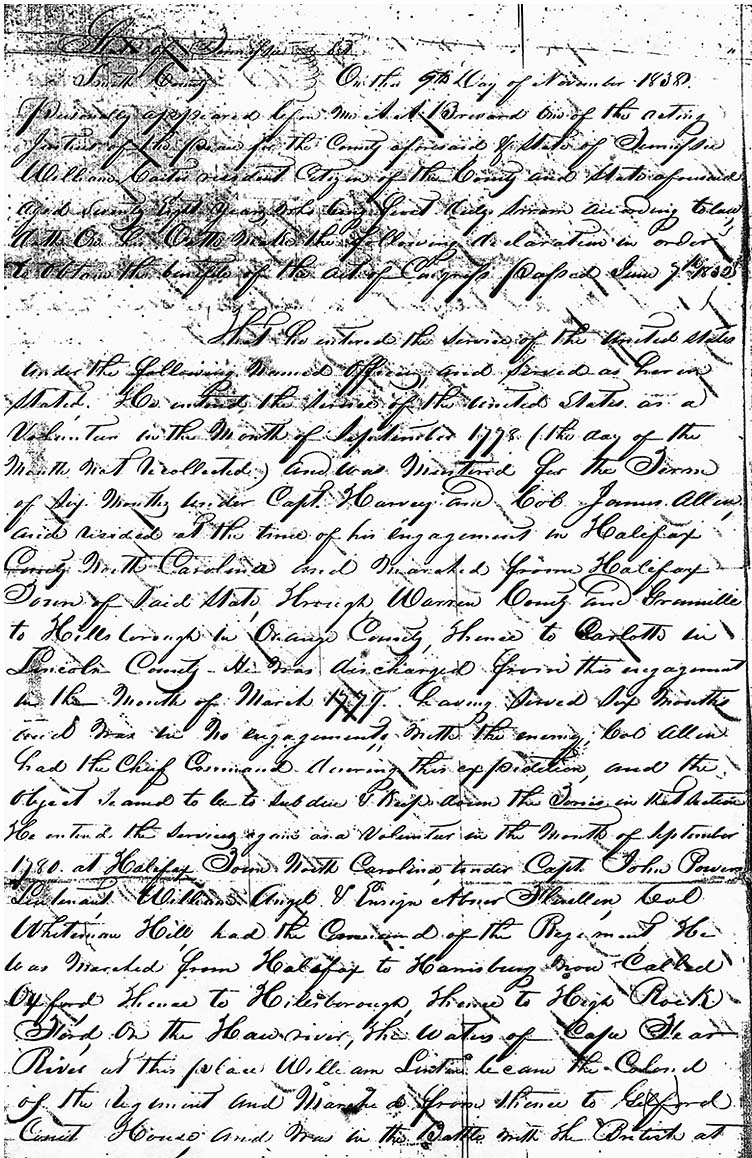 State of Tennessee
Smith County On this 9th Day of November 1838.
Personally appeared before me A. A. Brevard one of the acting
Justices of the peace for the County aforesaid & State of Tennessee
William Carter resident Citizen of the County and State aforesaid
aged Seventy Eight years who being first duly sworn according to law
doth on his Oath make the following declaration in order
to obtain the benefits of the act of Congress passed June 7th 1832
That he entered the service of the United States
under the following named officers, and served as herein
stated. He entered the service of the United States as a
Volunteer in the Month of September 1778 (the day of the
Month not recollected) and was Mustered for the Term
of Six Months under Capt. Harvey and Col James Allen,
and resided at the time of his engagement in Halifax
County North Carolina and marched from Halifax
Town of Said State, through Warren County and Granville
to Hillsborough in Orange County, thence to Carlotte in
Lincoln County - He was discharged from this engagement
in the Month of March 1779. having served Six Months
and was in no engagements with the enemy, Col Allen
had the Chief Command during this expedition, and the
object seamed to be to subdue & keep down the Tories in that section
He entered the services again as a Volunteer in the Month of September
1780 at Halifax Town North Carolina, under Capt. John Power
Lieutenant William Angel & Ensign Abner Col
Whitmian Hill had the Command of the Regiment, He
was Marched from Halifax to Harrisburg now Called
Oxford thence to Hilesborough, thence to High Rock
Ford on the Haw river, the waters of Cape Fear
River at this place William Linton became the Colonel
of the regiment and Marched from thence to Gilford
Court House and was in the Battle with the British at